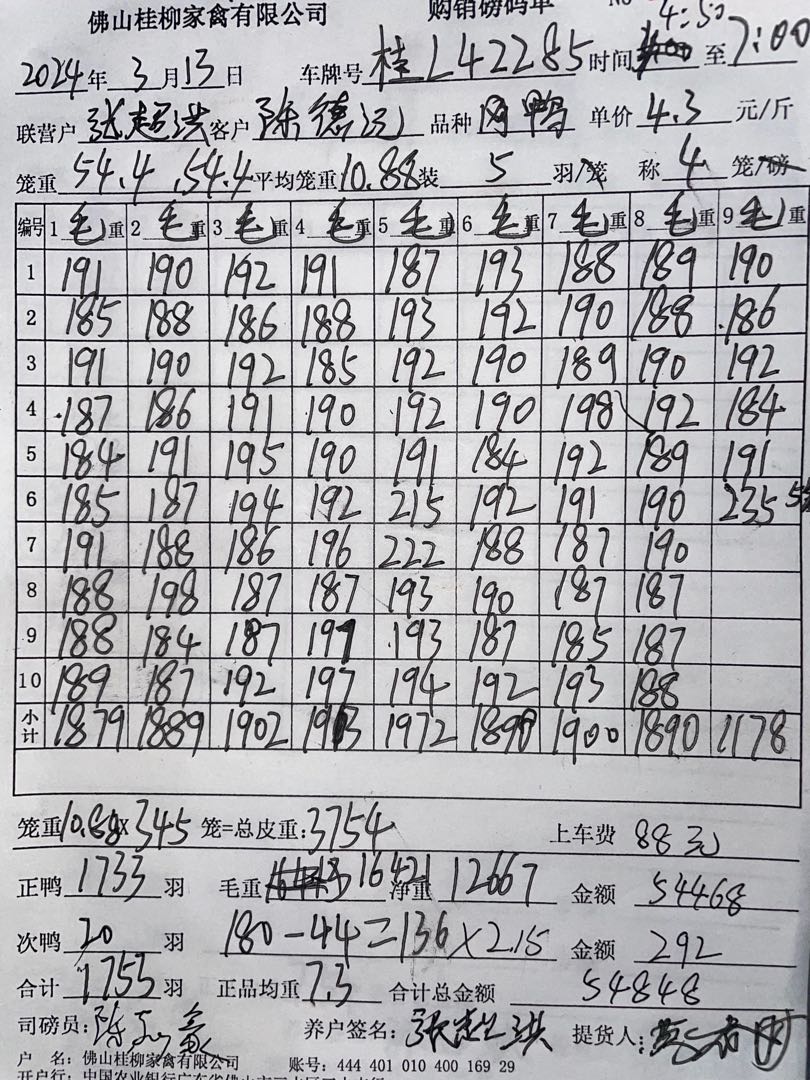 佛山桂柳家禽有限公司 购销磅码单 No 4:50
2024年 3月13日 车牌号 桂L42285 时间 至 7:00
联营户 张超洪 客户 陈德 品种 鸭 单价 4.3 元/斤
笼重 54.4 .54.4 平均笼重 10.88 装 5 羽/笼 称 4 笼/磅
编号 1 毛重 2 毛重 3 毛重 4 毛重 5 毛重 6 毛重 7 毛重 8 毛重 9 毛重
1 191 190 192 191 187 193 188 189 190
2 185 188 186 188 193 192 190 188 .186
3 191 190 192 185 192 190 189 190 192
4 .187 186 191 190 192 190 198 192 184
5 184 191 195 190 191 184 192 189 191
6 185 187 194 192 215 192 191 190 235
7 191 188 186 196 222 188 187 190
8 188 198 187 187 193 190 187 187
9 188 184 187 197 .193 187 185 187
10 189 187 192 197 194 192 193 188
小计 1879 1889 1902 1913 1972 1898 1900 1890 1178
笼重 10.88 X 345 笼=总皮重: 3754 上车费 88元
正鸭 1733 羽 毛重 16421 净重 12667 金额 54468
次鸭 20 羽 180-44=136×2.15 金额 292
合计 1753 羽 正品均重 7.3 合计总金额 54848
司磅员: 陈 养户签名: 张超洪 提货人:
户 名: 佛山桂柳家禽有限公司 账号: 444 401 010 400 169 29
开户行: 中国农业银行广东省佛山市三水区